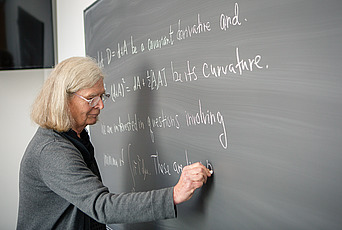 Let D = d+A be a covariant derivative and
(d+A)² = dA + ½[A,A] be its curvature.
am interested in questions involving
∫ These are